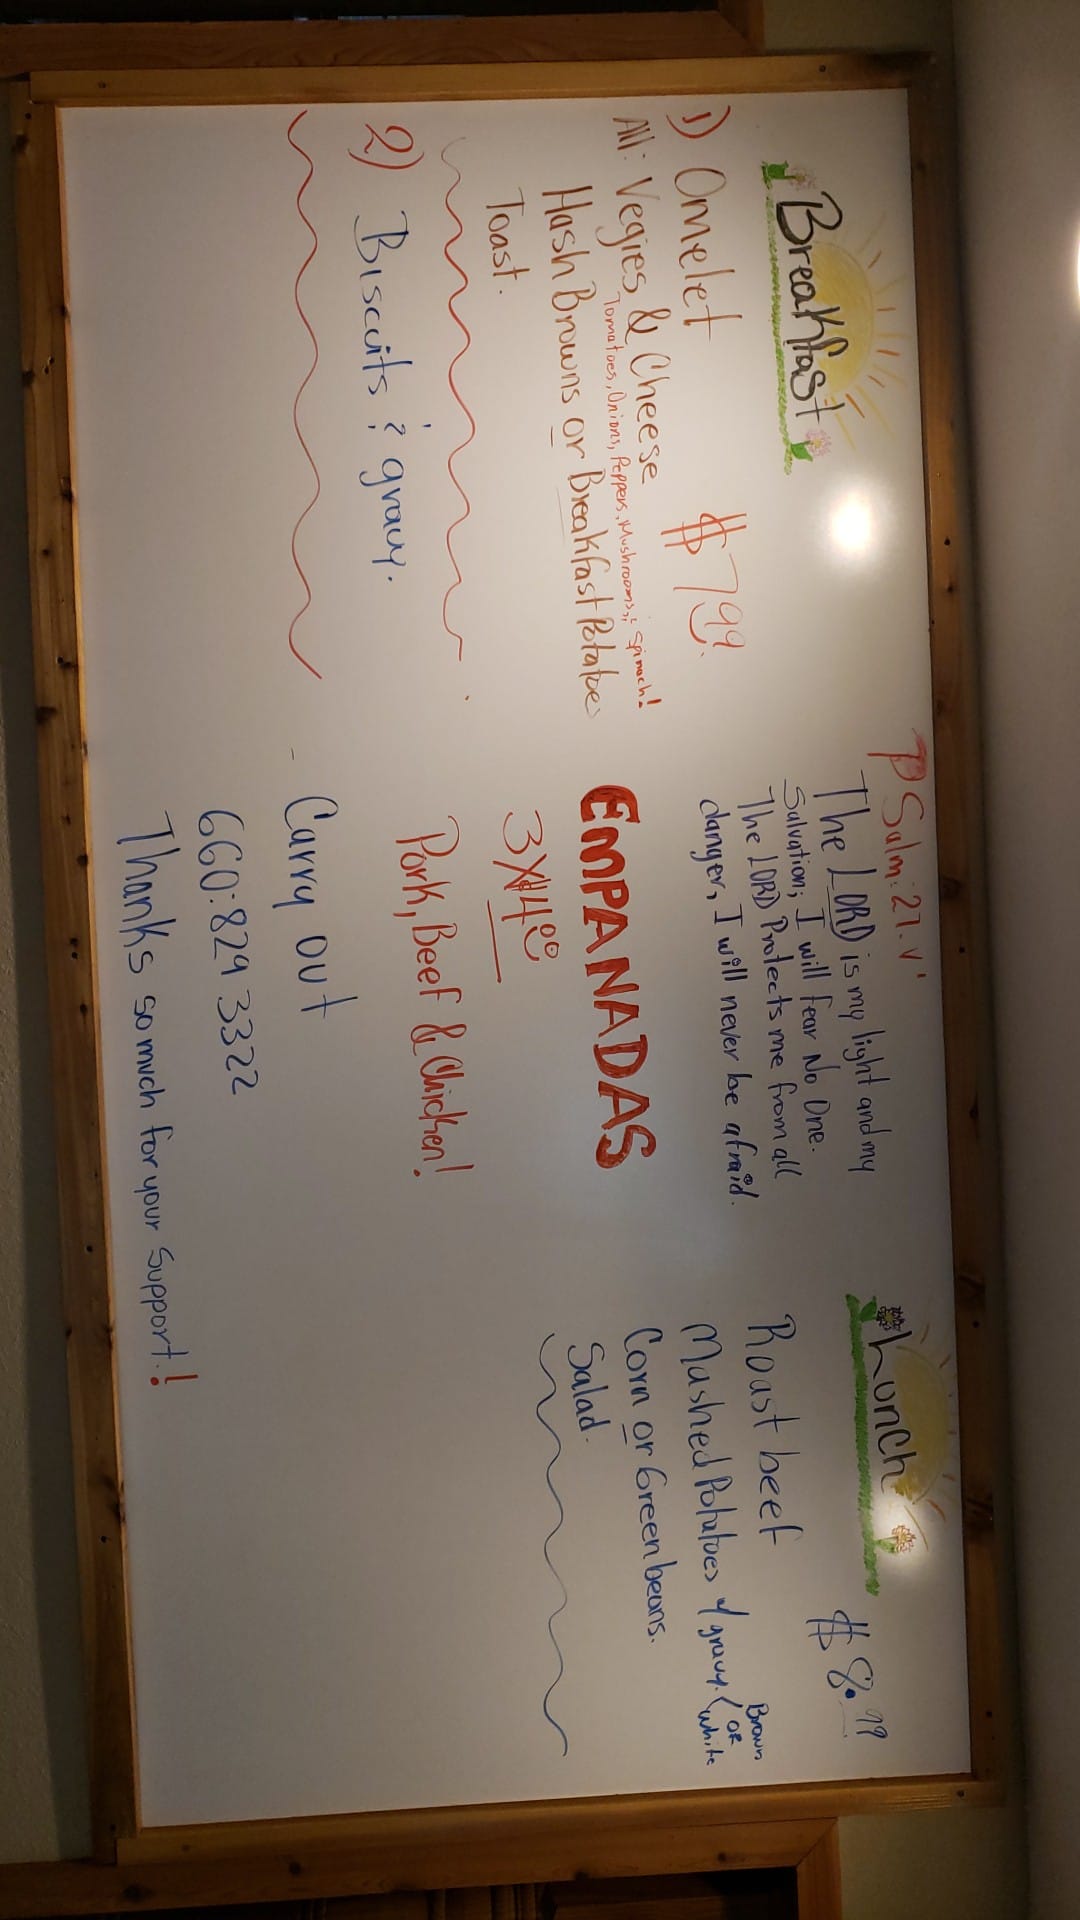 Breakfast
1) Omelet $7.99.
All: Vegies, & Cheese
Tomatoes, Onions, Peppers, Mushrooms, & Spinach!
Hash Browns or Breakfast Potatoes
Toast.
2) Biscuits & gravy.
PSalm: 27. V'
The LORD is my light and my
Salvation; I will fear No One.
The LORD Protects me from all
danger, I will never be afraid.
EMPANADAS
3X$4.00
Pork, Beef & Chicken!
- Carry out
660:829 3322
Thanks so much for your Support.!
Lunch
$8.99
Roast beef
Mashed Potatoes w/ gravy. (Brown OR white
Corn or Green beans.
Salad.